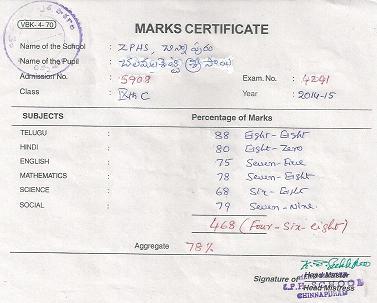 VBK- 4- 70
MARKS CERTIFICATE
Name of the School : ZPHS,
Name of the Pupil :
Admission No. : 5909 Exam. No. : 4241
Class : IXth C Year : 2014-15
SUBJECTS Percentage of Marks
TELUGU : 88 Eight-Eight
HINDI : 80 Eight-Zero
ENGLISH : 75 Seven-Five
MATHEMATICS : 78 Seven-Eight
SCIENCE : 68 Six-Eight
SOCIAL : 79 Seven-Nine
468 (Four-Six-eight)
Aggregate 78%
Signature of Head Master
Head Mistress
Z.P.H. SCHOOL
CHINNAPURAM